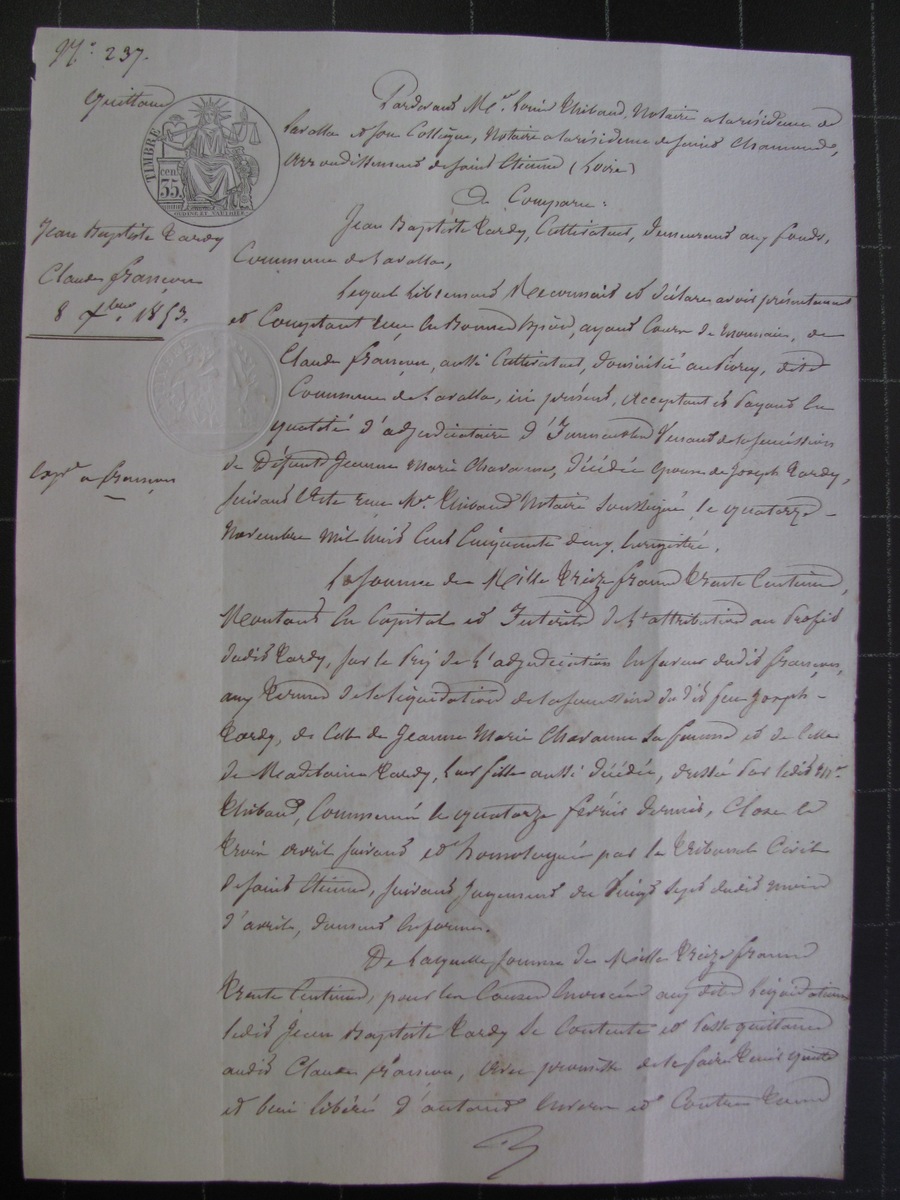 N.° 237.
Quittance
TIMBRE
35
cen.
Jean Baptiste Tardy
Claude françon
8 Xbre. 1853.
Expé. a françon
Pardevant Me. Louis Thibaud, Notaire a la résidence de
Lavalla et son Collègue, Notaire a la résidence de Saint Chamond,
Arrondissement de Saint Etienne (Loire)
A Comparu:
Jean Baptiste Tardy, Cultivateur, demeurant aux fonds,
Commune de Lavalla,
Lequel librement Reconnait et déclare avoir présentement
et Comptant reçu en bonnes espèces, ayant Cours de monnaie, de
Claude françon, aussi Cultivateur, domicilié au, dite
Commune de Lavalla, ici présent, acceptant et Payant en
qualité d'adjudicataire d'Immeubles Venant de la succession
de Défunte Jeanne Marie Chavanne, décédée épouse de Joseph Tardy,
suivant acte reçu Me. Thibaud Notaire soussigné, le quatorze
Novembre Mil huit Cent Cinquante deux, Enregistré,
La Somme de Mille Treize francs Trente Centimes,
Montant en Capital et Intérêts de l'attribution au Profit
dudit Tardy, sur le Prix de l'adjudication en faveur dudit françon,
aux Termes de la liquidation de la succession dudit feu Joseph
Tardy, de Celle de Jeanne Marie Chavanne sa femme et de Celle
de Madelaine Tardy, leur fille aussi décédée, dressée Par ledit Me.
Thibaud, Commencée le quatorze février dernier, Close le
Trois avril suivant et homologuée par le Tribunal Civil
de Saint Etienne, suivant Jugement du Vingt Sept dudit mois
d'avril, dument en forme.
De laquelle Somme de Mille Treize francs
Trente Centimes, pour les Causes énoncées aux dites liquidations
ledit Jean Baptiste Tardy Se Contente et Passe quittance
audit Claude françon, avec promesse de le faire Tenir quitte
et bien libéré d'autant envers et Contre Tous